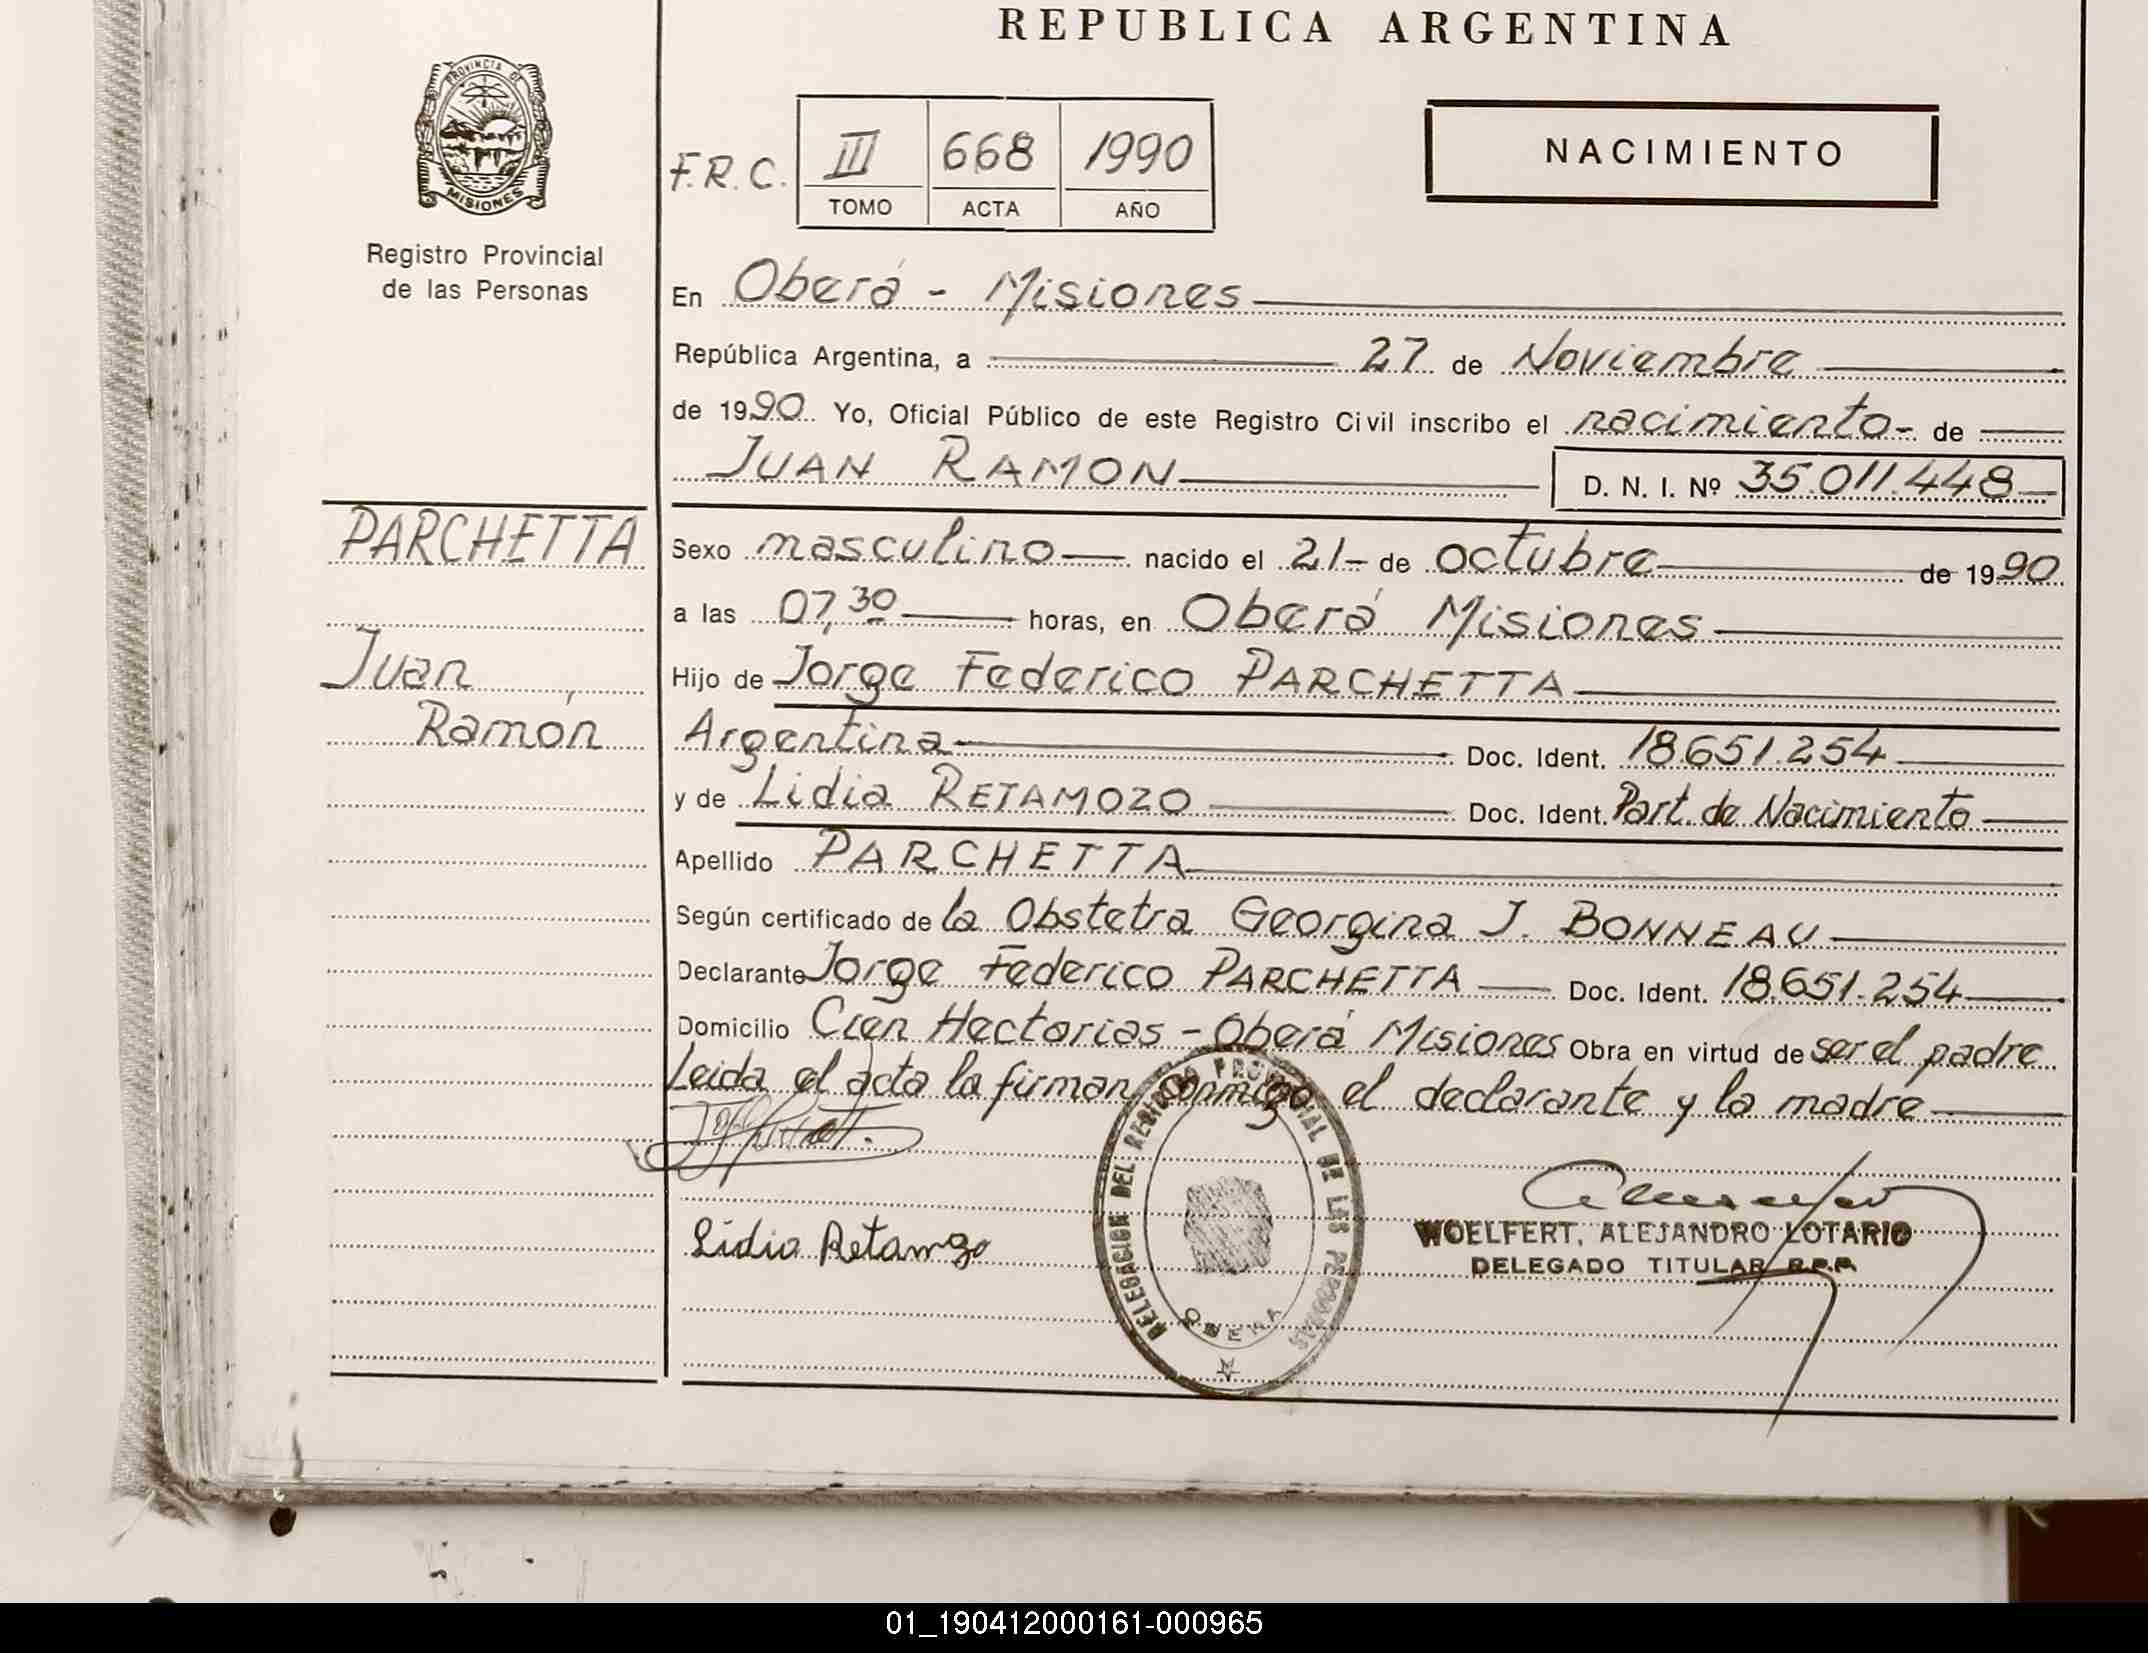 REPUBLICA ARGENTINA
PROVINCIA DE
MISIONES
Registro Provincial
de las Personas
F.R.C. III 668 1990
TOMO ACTA AÑO
NACIMIENTO
En Oberá - Misiones
República Argentina, a 27 de Noviembre
de 1990 Yo, Oficial Público de este Registro Civil inscribo el nacimiento- de
JUAN RAMON D. N. I. Nº 35.011.448
PARCHETTA
Juan
Ramón
Sexo masculino nacido el 21- de octubre de 1990
a las 07,30 horas, en Oberá Misiones
Hijo de Jorge Federico PARCHETTA
Argentina Doc. Ident. 18.651.254
y de Lidia RETAMOZO Doc. Ident. Part. de Nacimiento
Apellido PARCHETTA
Según certificado de la Obstetra Georgina J. BONNEAU
Declarante Jorge Federico PARCHETTA Doc. Ident. 18.651.254
Domicilio Cien Hectarias - Oberá Misiones Obra en virtud de ser el padre
Leida el acta la firman conmigo el declarante y la madre
Lidia Retamozo
DELEGACION DEL REGISTRO PROVINCIAL DE LAS PERSONAS
OBERA
WOELFERT, ALEJANDRO LOTARIO
DELEGADO TITULAR R.P.P.
01_190412000161-000965